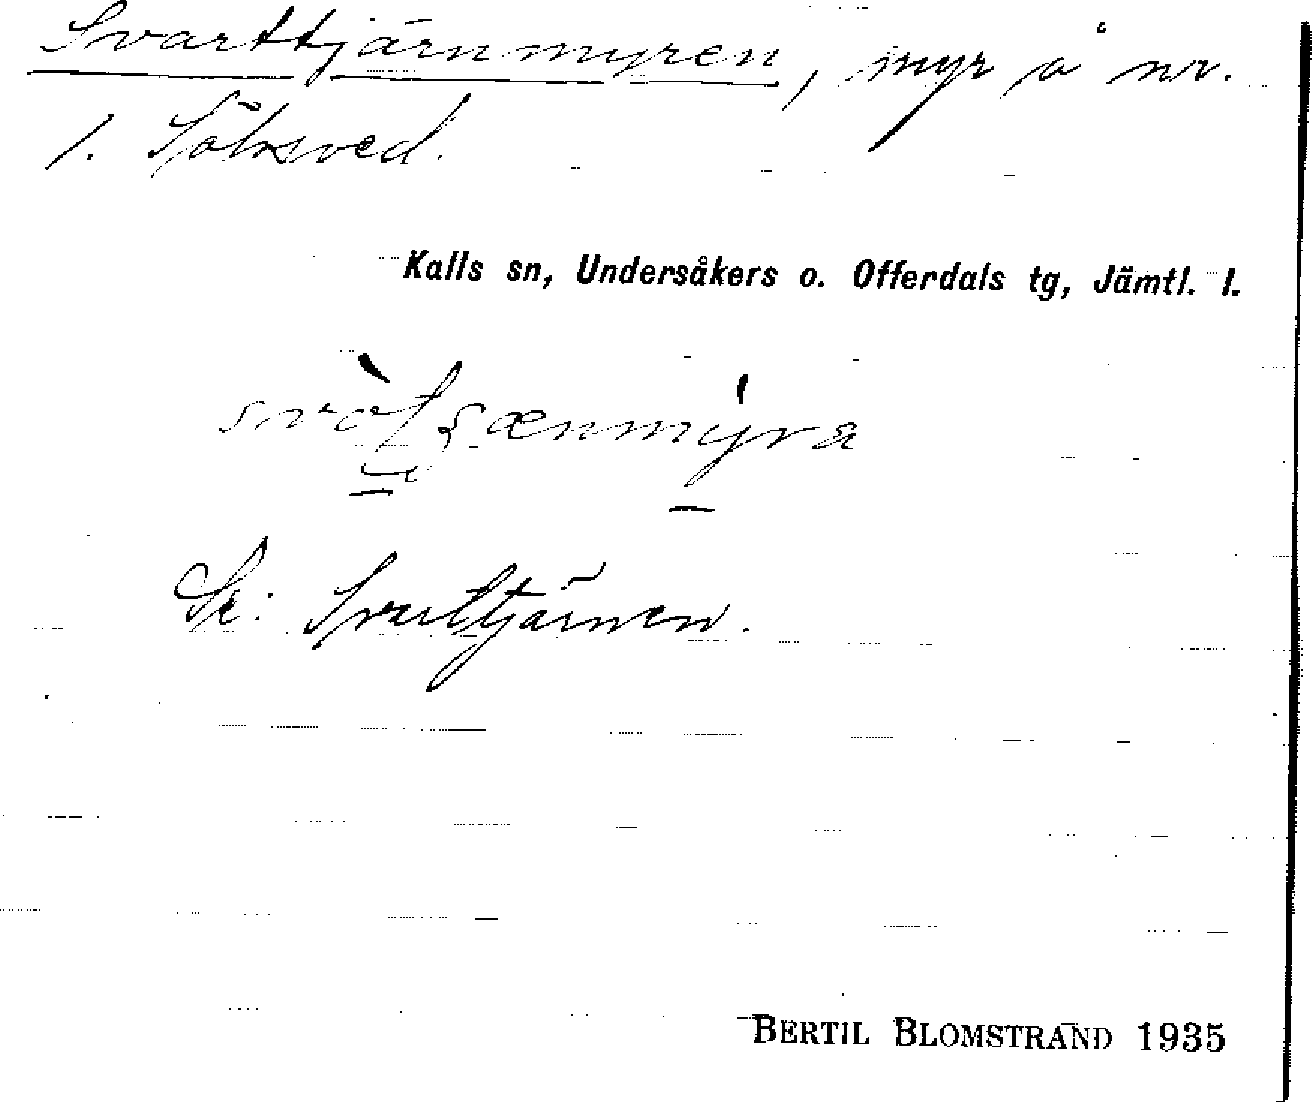 Svarttjärnmyren, myr å nr.
1. Sölvsved.
Kalls sn, Undersåkers o. Offerdals tg, Jämtl. l.
Se: Svarttjärnen.
BERTIL BLOMSTRAND 1935